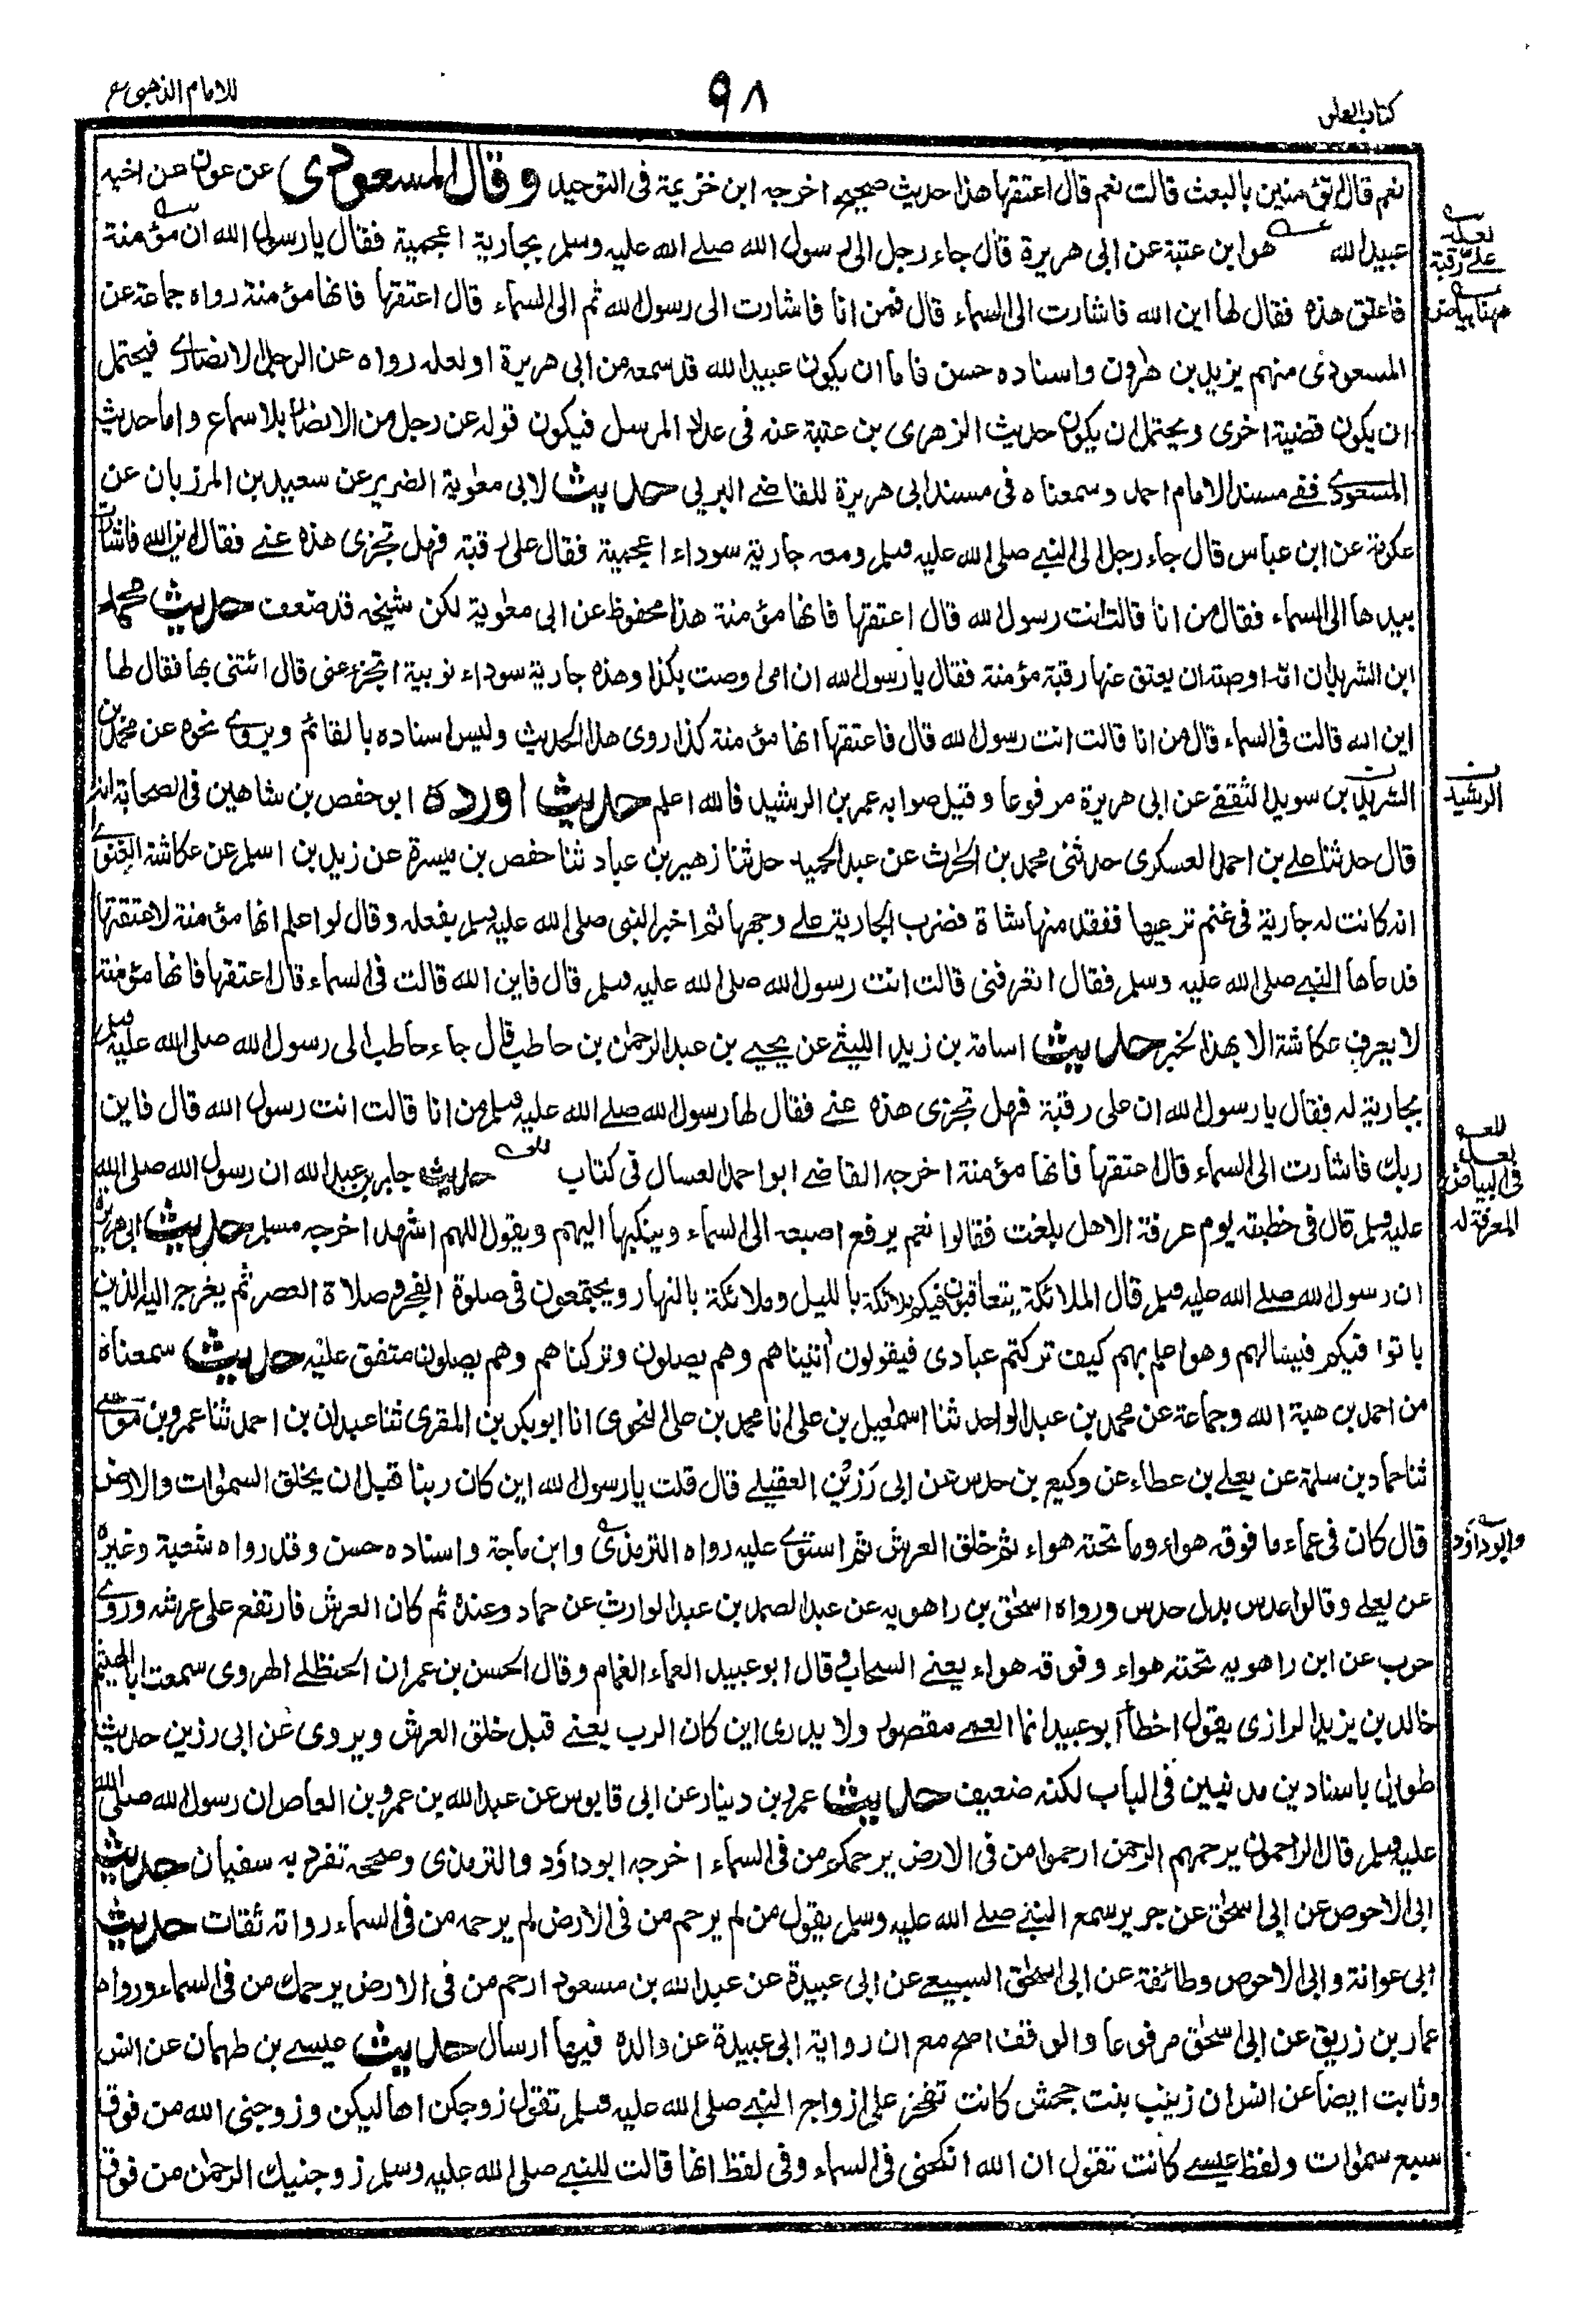 كتاب العلو
٩٨
للامام الذهبى
نعم قال اتؤمنين بالبعث قالت نعم قال اعتقها هذا حديث صحيح اخرجه ابن خزيمة فى التوحيد وقال المسعودى عن عون عن اخيه
عبيد الله هو ابن عتبة عن ابى هريرة قال جاء رجل الى رسول الله صلے الله عليه وسلم بجارية اعجمية فقال يا رسول الله ان مؤمنة
فاعتق هذه فقال لها اين الله فاشارت الى السماء قال فمن انا فاشارت الى رسول الله ثم الى السماء قال اعتقها فانها مؤمنة رواه جماعة عن
المسعودى منهم يزيد بن هارون واسناده حسن فاما ان يكون عبيد الله قد سمعه من ابى هريرة او لعله رواه عن الرجل الانصارے فيحتمل
ان يكون قضية اخرى ويحتمل ان يكون حديث الزهرى بن عتبة عنه فى عداد المرسل فيكون قوله عن رجل من الانصار بلا سماع واما حديث
المسعودے ففے مسند الامام احمد وسمعناه فى مسند ابى هريرة للقاضے البرتى حديث لابى معٰوية الضرير عن سعيد بن المرزبان عن
عكرمة عن ابن عباس قال جاء رجل الى النبے صلى الله عليه وسلم ومعه جارية سوداء اعجمية فقال على رقبة فهل تجزى هذه عنے فقال اين الله فاشارت
بيدها الى السماء فقال من انا قالت انت رسول الله قال اعتقها فانها مؤمنة هذا محفوظ عن ابى معٰوية لكن شيخه قد ضعف حديث محمد
ابن الشريد ان امه اوصته ان يعتق عنها رقبة مؤمنة فقال يا رسول الله ان امى اوصت بكذا وهذه جارية سوداء نوبية اتجزئ عنى قال ائتنى بها فقال لها
اين الله قالت فى السماء قال من انا قالت انت رسول الله قال فاعتقها انها مؤمنة كذا روى هذا الحديث وليس اسناده بالقائم ويروے نحوه عن محمد بن
الشريد بن سويد الثقفے عن ابى هريرة مرفوعا وقيل صوابه عمر بن الرشيد فالله اعلم حديث اورده ابو حفص بن شاهين فى الصحابة له
قال حدثنا علے بن احمد العسكرى حدثنى محمد بن الحارث عن عبد الحميد حدثنا زهير بن عباد ثنا حفص بن ميسرة عن زيد بن اسلم عن عكاشة الغنوے
انه كانت له جارية فى غنم ترعيها ففقد منها شاة فضرب الجارية علے وجهها ثم اخبر النبى صلى الله عليه وسلم بفعله وقال لو اعلم انها مؤمنة لاعتقتها
فدعاها النبے صلى الله عليه وسلم فقال اتعرفنى قالت انت رسول الله صلى الله عليه وسلم قال فاين الله قالت فى السماء قال اعتقها فانها مؤمنة
لا يعرف عكاشة الا بهذا الخبر حديث اسامة بن زيد الليثے عن يحيے بن عبد الرحمٰن بن حاطب قال جاء حاطب الى رسول الله صلى الله عليه وسلم
بجارية له فقال يا رسول الله ان على رقبة فهل تجزى هذه عنے فقال لها رسول الله صلے الله عليه وسلم من انا قالت انت رسول الله قال فاين
ربك فاشارت الى السماء قال اعتقها فانها مؤمنة اخرجه القاضے ابو احمد العسال فى كتاب حديث جابر بن عبد الله ان رسول الله صلى الله
عليه وسلم قال فى خطبته يوم عرفة الا هل بلغت فقالوا نعم يرفع اصبعه الى السماء وينكبها اليهم ويقول اللهم اشهد اخرجه مسلم حديث ابى هريرة
ان رسول الله صلے الله عليه وسلم قال الملائكة يتعاقبون فيكم ملائكة بالليل وملائكة بالنهار ويجتمعون فى صلوة الفجر وصلاة العصر ثم يعرج اليه الذين
باتوا فيكم فيسالهم وهو اعلم بهم كيف تركتم عبادى فيقولون اتيناهم وهم يصلون وتركناهم وهم يصلون متفق عليه حديث سمعناه
من احمد بن هبة الله وجماعة عن محمد بن عبد الواحد ثنا اسمٰعيل بن على انا محمد بن على النحوى انا ابو بكر بن المقرى ثنا عبدان بن احمد ثنا عمرو بن موسے
ثنا حماد بن سلمة عن يعلے بن عطاء عن وكيع بن حدس عن ابى رَزِيْن العقيلے قال قلت يا رسول الله اين كان ربنا قبل ان يخلق السمٰوات والارض
قال كان فى عماء ما فوقه هواء وما تحته هواء ثم خلق العرش ثم استوے عليه رواه الترمذى وابن ماجة واسناده حسن وقد رواه شعبة وغيره
عن يعلے وقالوا عدس بدل حدس ورواه اسحٰق بن راهويه عن عبد الصمد بن عبد الوارث عن حماد وعنده ثم كان العرش فارتفع على عرشه وروے
حرب عن ابن راهويه تحته هواء وفوقه هواء يعنے السحاب قال ابو عبيد العماء الغمام وقال الحسن بن عمران الحنظلے الهروى سمعت ابا الهيثم
خالد بن يزيد الرازى يقول اخطأ ابو عبيد انما العمے مقصور ولا يدرى اين كان الرب يعنے قبل خلق العرش ويروى عن ابى رزين حديث
طويل باسنادين مدنيين فى الباب لكنه ضعيف حديث عمرو بن دينار عن ابى قابوس عن عبد الله بن عمرو بن العاص ان رسول الله صلى الله
عليه وسلم قال الراحمون يرحمهم الرحمن ارحموا من فى الارض يرحمكم من فى السماء اخرجه ابو داؤد والترمذى وصححه تفرد به سفيان حديث
ابى الاحوص عن ابى اسحٰق عن جرير سمع النبے صلے الله عليه وسلم يقول من لم يرحم من فى الارض لم يرحمه من فى السماء رواته ثقات حديث
ابى عوانة وابى الاحوص وطائفة عن ابى اسحٰق السبيعے عن ابى عبيدة عن عبد الله بن مسعود ارحم من فى الارض يرحمك من فى السماء ورواه
عمار بن زريق عن ابى اسحٰق مرفوعا والوقف اصح مع ان رواية ابى عبيدة عن والده فيها ارسال حديث عيسے بن طهمان عن انس
وثابت ايضا عن انس ان زينب بنت جحش كانت تفخر على ازواج النبے صلى الله عليه وسلم تقول زوجكن اهاليكن وزوجنى الله من فوق
سبع سمٰوات ولفظ عيسے كانت تقول ان الله انكحنى فى السماء وفى لفظ انها قالت للنبے صلى الله عليه وسلم زوجنيك الرحمٰن من فوق
لعله
علىّ رقبة
ههنا بياض
الرشيد
لعله
فى البياض
المعرفة له
وابو داؤد